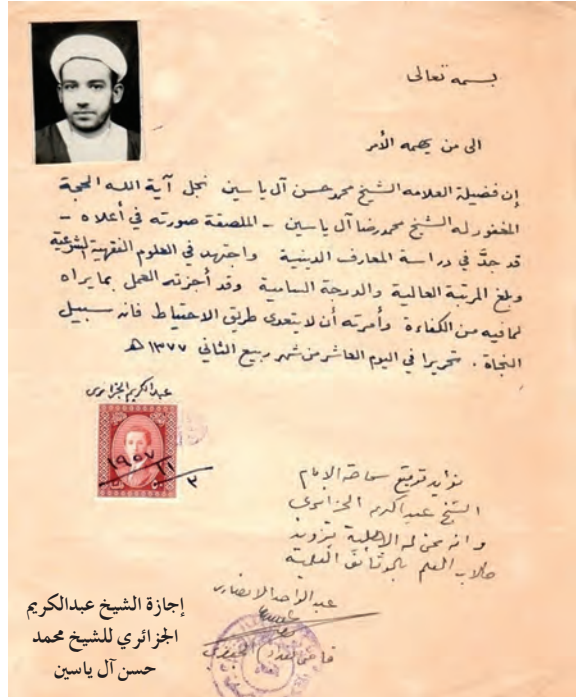 بسمه تعالى
الى من يهمه الأمر
إن فضيلة العلامه الشيخ محمد حسن آل ياسين نجل آية الله الحجة
المغفور له الشيخ محمد رضا آل ياسين - الملصقة صورته في أعلاه -
قد جدَّ في دراسة المعارف الدينية واجتهد في العلوم الفقهية الشرعية
وبلغ المرتبة العالية والدرجة السامية وقد أجزته العمل بما يراه
لما فيه من الكفاءة وأمرته أن لا يتعدى طريق الاحتياط فانه سبيل
النجاة . تحريرا في اليوم العاشر من شهر ربيع الثاني ١٣٧٧ هـ
عبدالكريم الجزائري
٣/١١/١٩٥٧
نؤيد توقيع سماحة الامام
الشيخ عبد الكريم الجزائري
و انه ممن له الاهلية تزويد
طلاب العلم بالوثائق العلمية
عبد الواحد الانصاري
قاضي بغداد الجعفري
إجازة الشيخ عبدالكريم
الجزائري للشيخ محمد
حسن آل ياسين